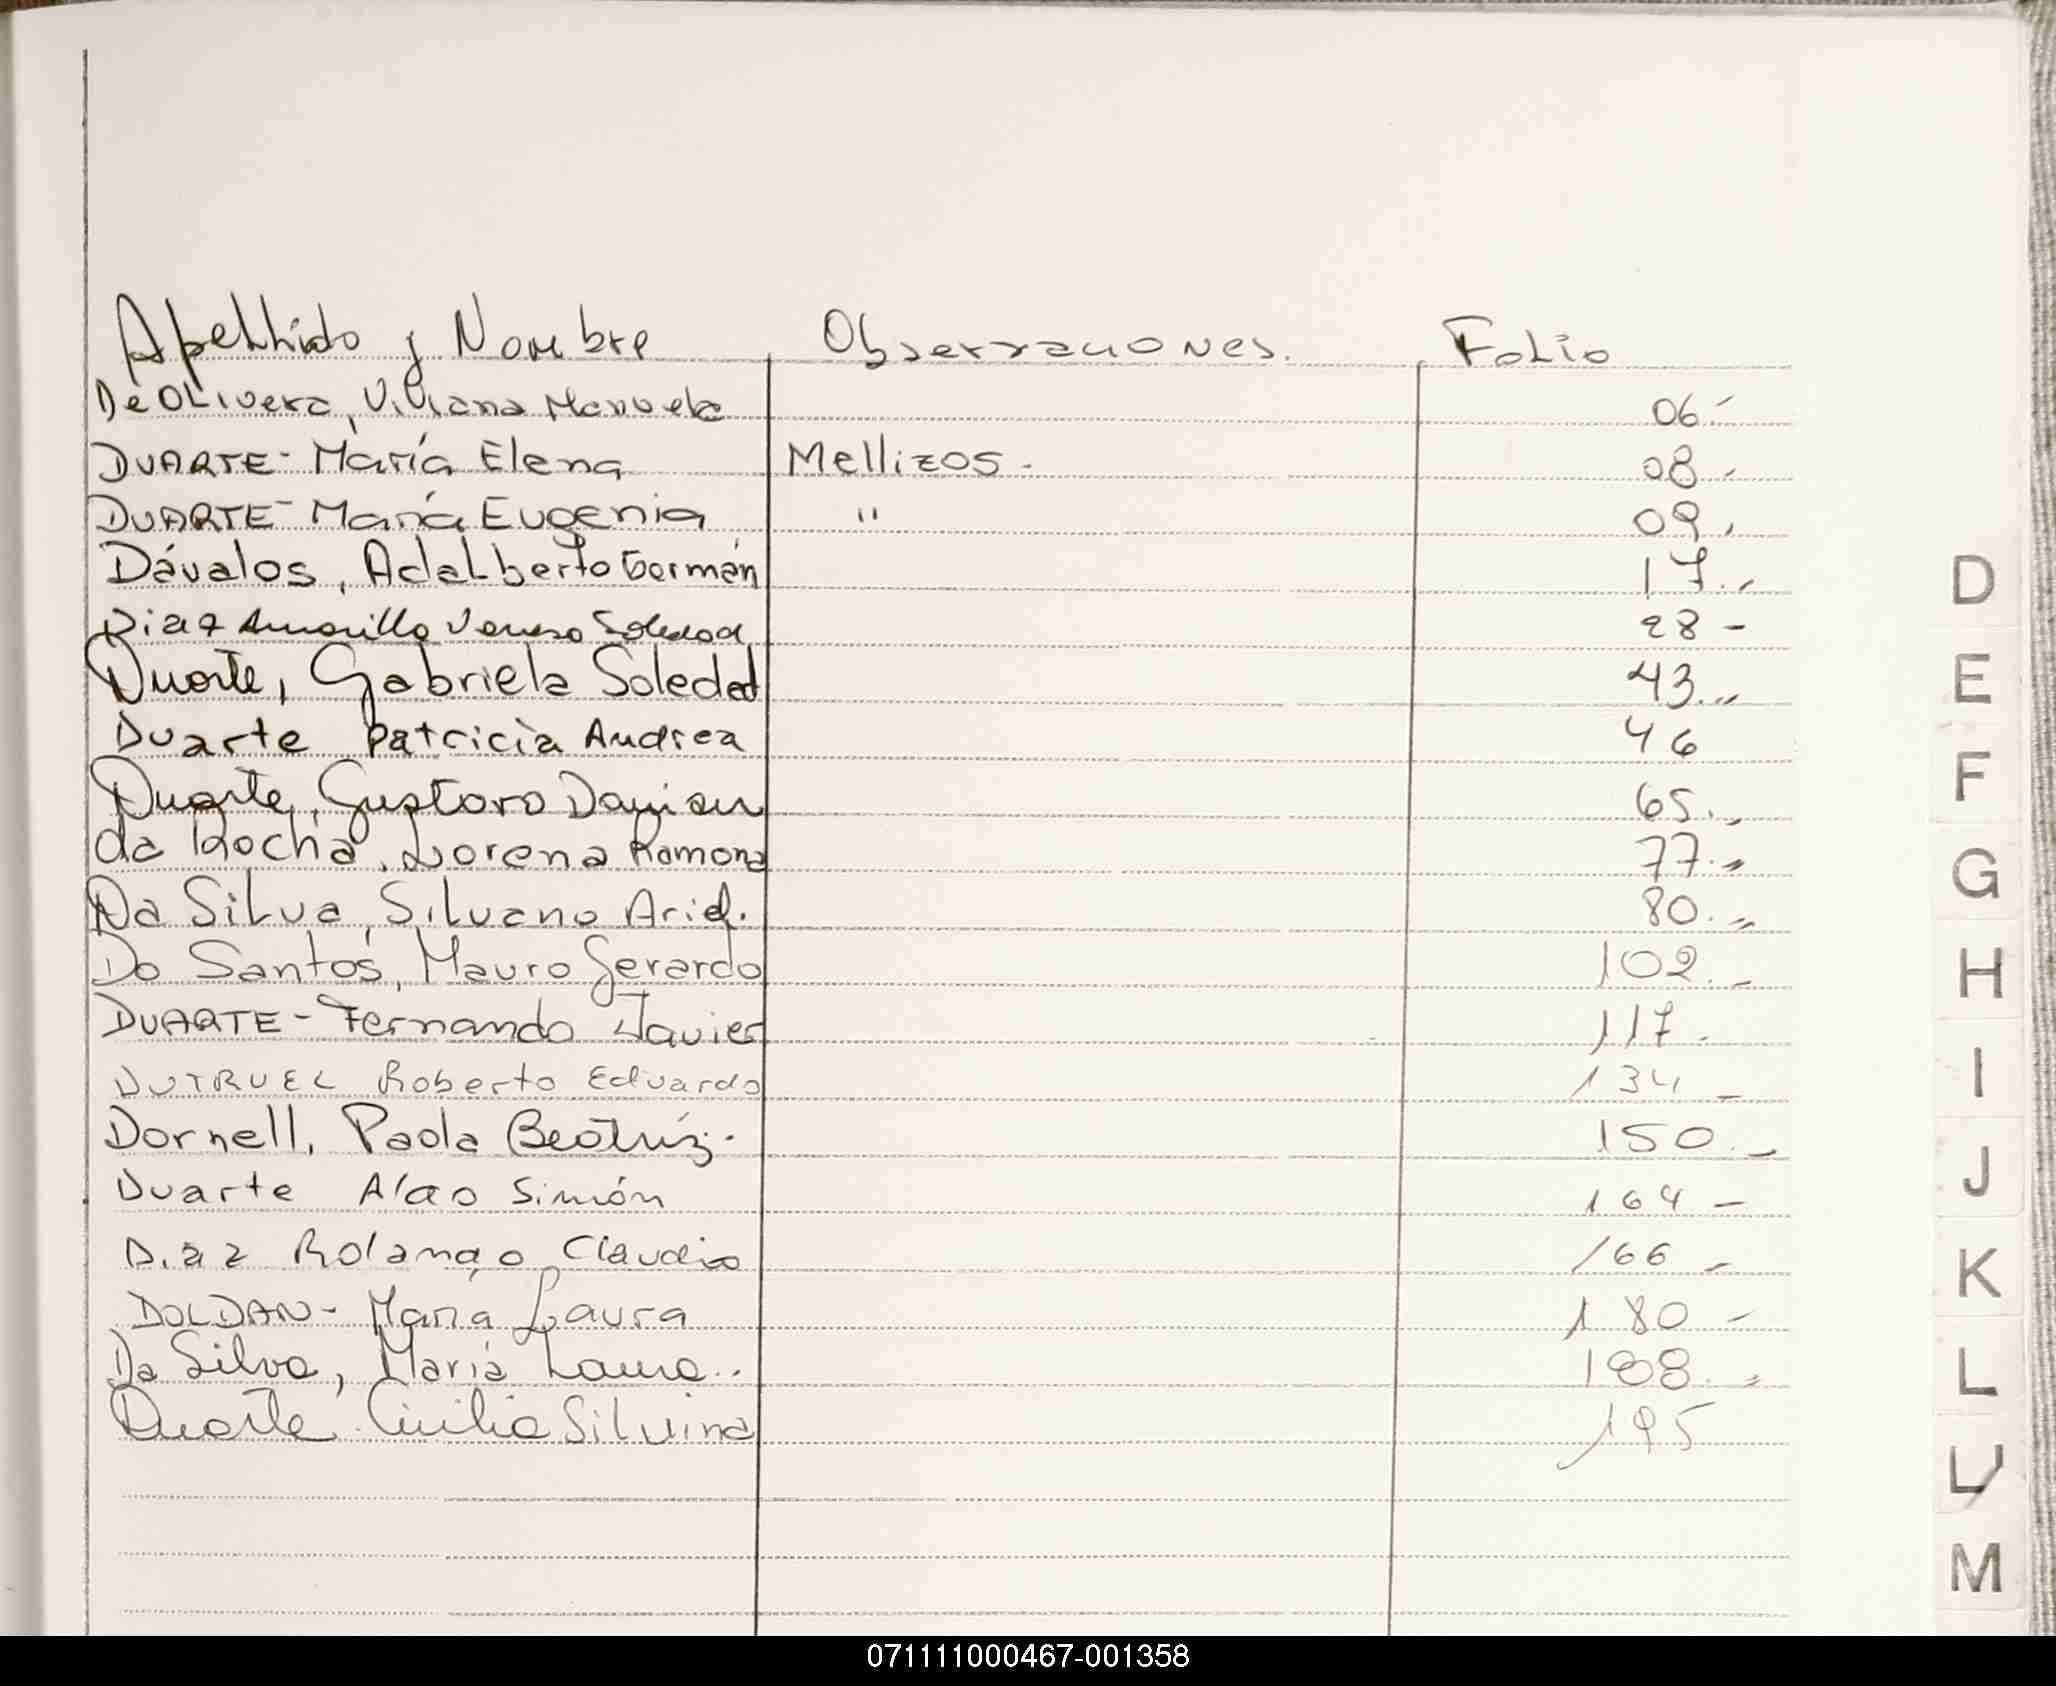 Apellido y Nombre Observaciones. Folio
De Olivera, Viviana Manuela 06.-
DUARTE- María Elena Mellizos.- 08.-
DUARTE- María Eugenia " 09.
Dávalos, Adalberto Germán 17.-
Diaz Amarillo Soledad 28 -
Duarte, Gabriela Soledad 43.,,
Duarte Patricia Andrea 46
Duarte, Gustavo Damian 65.,,
da Rocha, Lorena Ramona 77.,,
Da Silva, Silvano Ariel. 80.,,
Do Santos, Mauro Gerardo 102.-
DUARTE- Fernando Javier 117.
DUTRUEL Roberto Eduardo 134 -
Dornell, Paola Beatríz.- 150.-
Duarte Aldo Simón 164 -
Diaz Rolando Claudio 166 -
DOLDAN- María Laura 180 -
Da Silva, María Laura.. 188.,,
Duarte Silvina 195
D
E
F
G
H
I
J
K
L
M
071111000467-001358